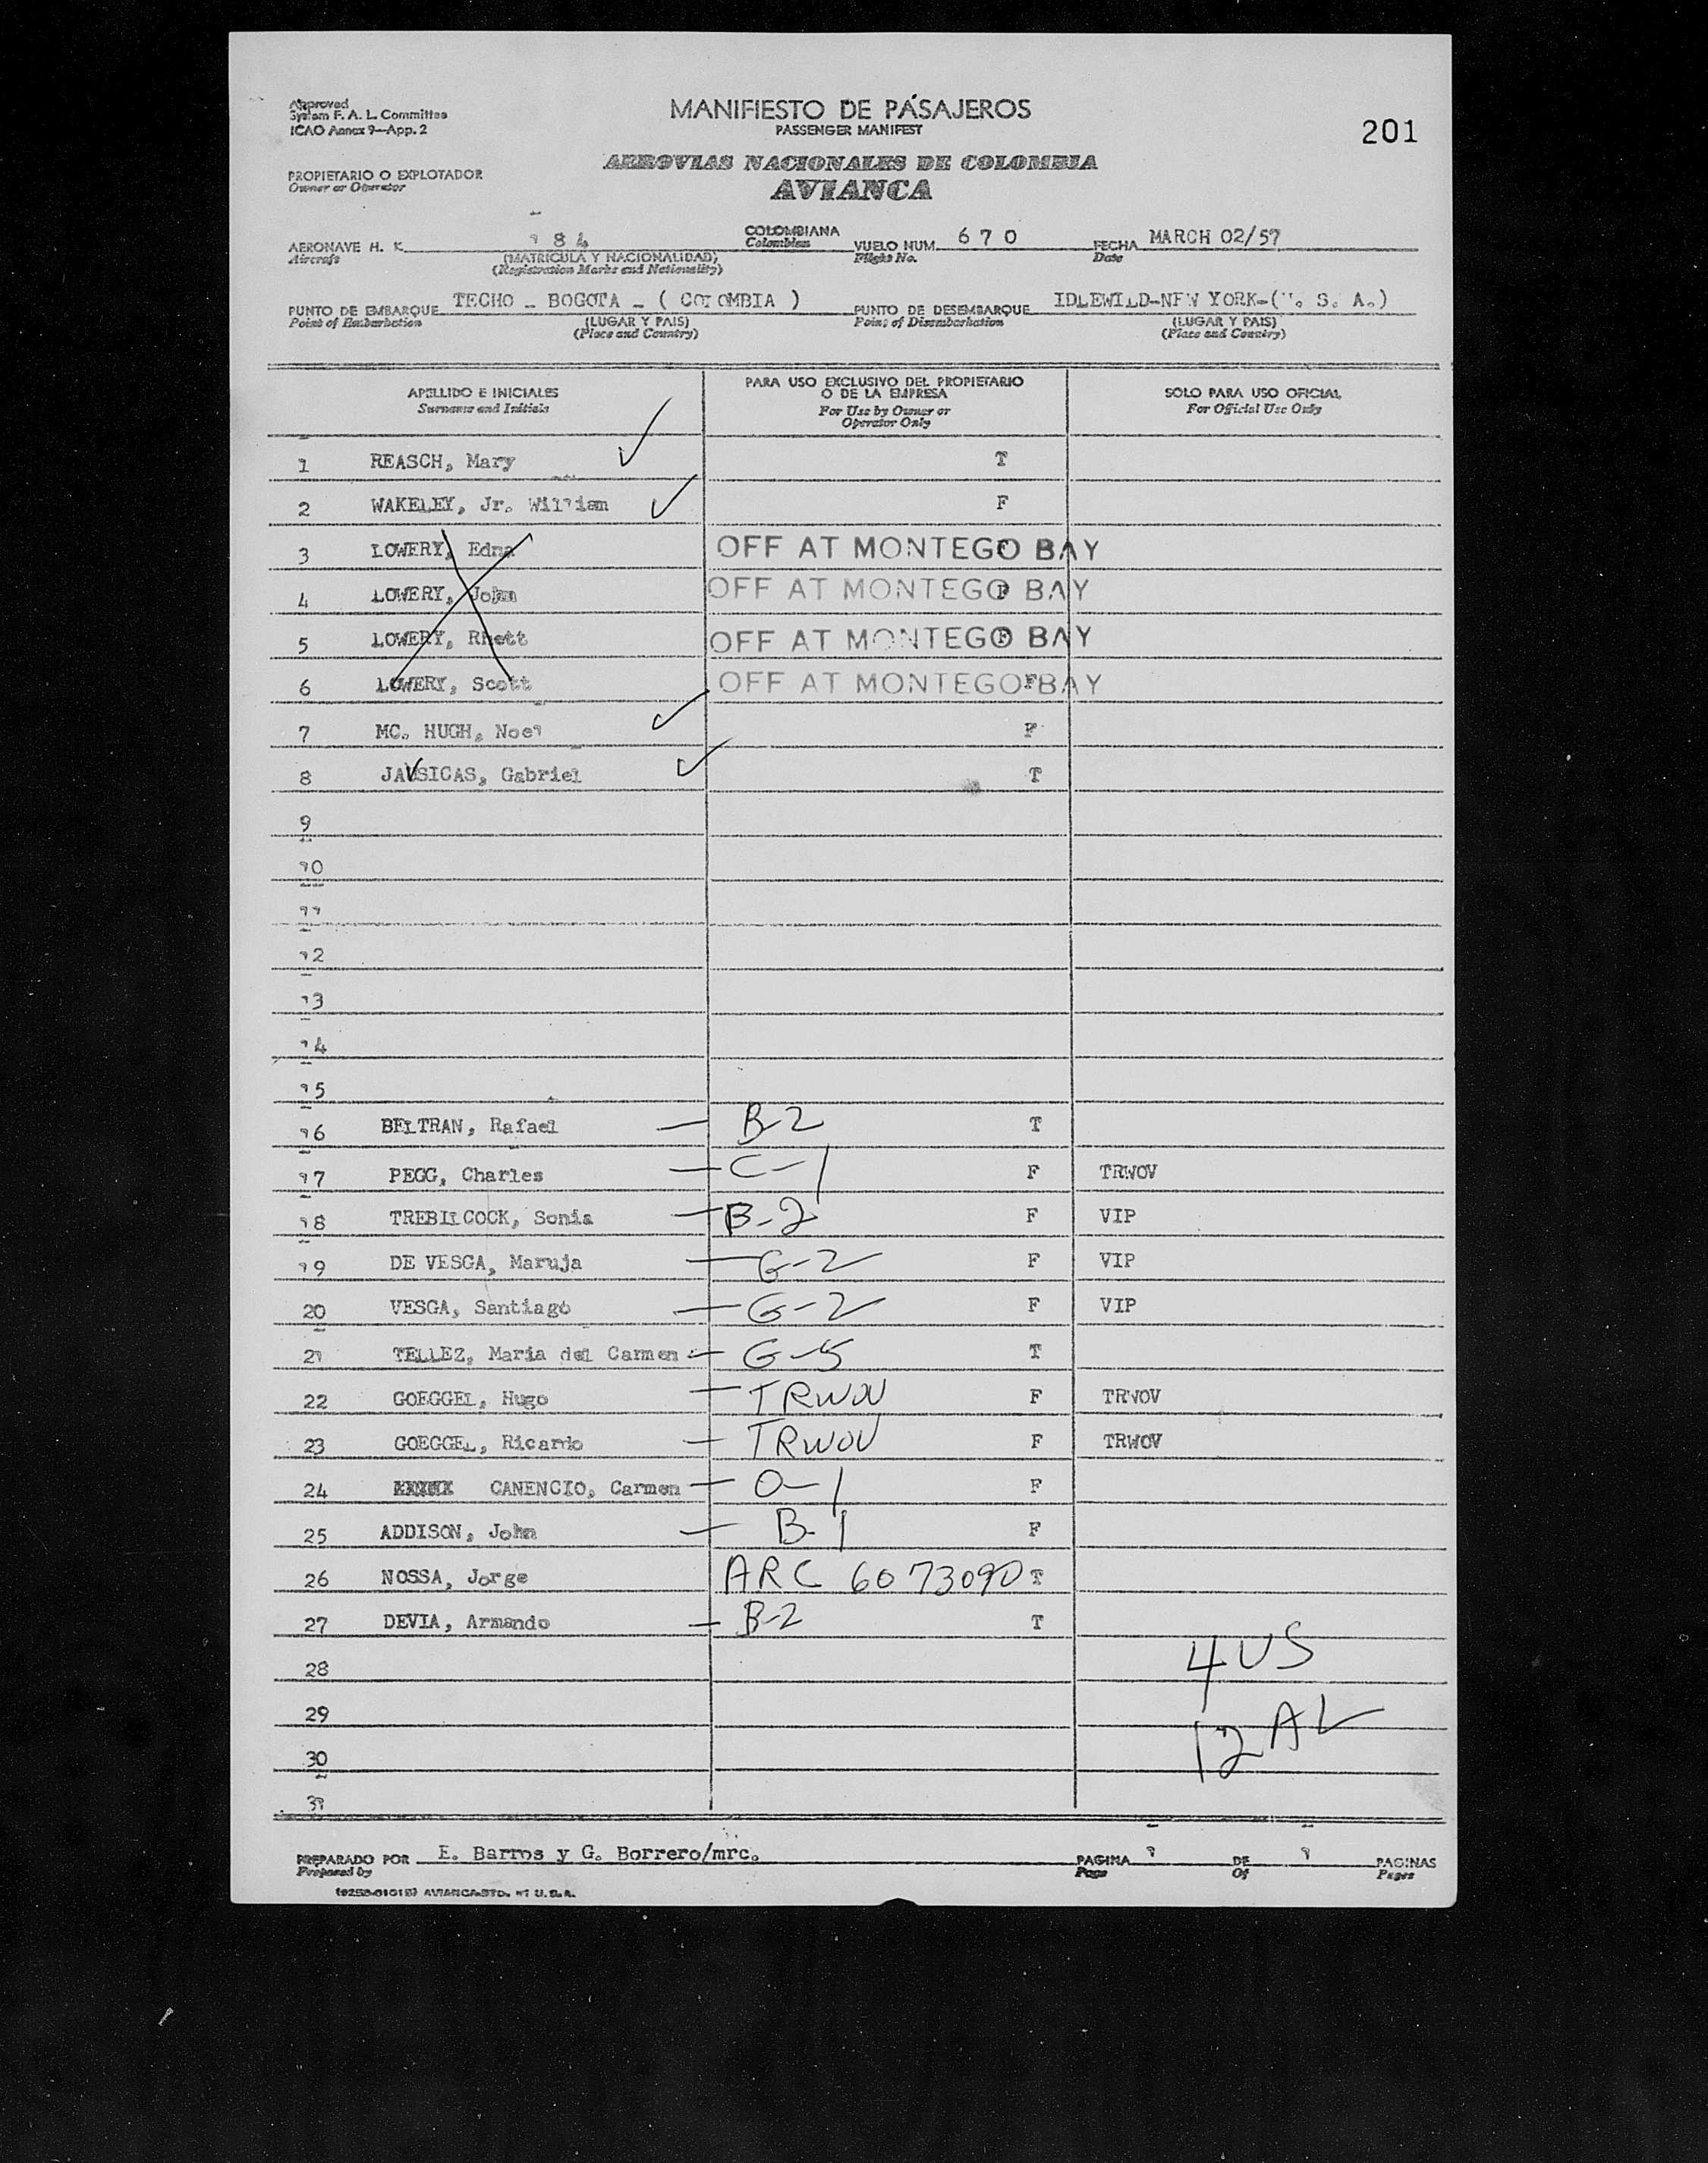 Approved
System F. A. L. Committee
ICAO Annex 9—App. 2
MANIFIESTO DE PASAJEROS
PASSENGER MANIFEST
201
AEROVIAS NACIONALES DE COLOMBIA
AVIANCA
PROPIETARIO O EXPLOTADOR
Owner or Operator
AERONAVE H. K. 184 COLOMBIANA VUELO NUM. 670 FECHA MARCH 02/57
Aircraft (MATRICULA Y NACIONALIDAD) Colombian Flight No. Date
(Registration Marks and Nationality)
PUNTO DE EMBARQUE TECHO - BOGOTA - ( COLOMBIA ) PUNTO DE DESEMBARQUE IDLEWILD-NEW YORK-(U. S. A.)
Point of Embarkation (LUGAR Y PAIS) Point of Disembarkation (LUGAR Y PAIS)
(Place and Country) (Place and Country)
APELLIDO E INICIALES PARA USO EXCLUSIVO DEL PROPIETARIO SOLO PARA USO OFICIAL
Surname and Initials O DE LA EMPRESA For Official Use Only
For Use by Owner or
Operator Only
1 REASCH, Mary T
2 WAKELEY, Jr. William F
3 LOWERY, Edna OFF AT MONTEGO BAY F
4 LOWERY, John OFF AT MONTEGO BAY F
5 LOWERY, Rhett OFF AT MONTEGO BAY F
6 LOWERY, Scott OFF AT MONTEGO BAY F
7 MC. HUGH, Noel F
8 JAVSICAS, Gabriel T
9
10
11
12
13
14
15
16 BELTRAN, Rafael — B-2 T
17 PEGG, Charles — C-1 F TRWOV
18 TREBILCOCK, Sonia — B-2 F VIP
19 DE VESGA, Maruja — G-2 F VIP
20 VESGA, Santiago — G-2 F VIP
21 TELLEZ, Maria del Carmen — G-5 T
22 GOEGGEL, Hugo — TRWOV F TRWOV
23 GOEGGEL, Ricardo — TRWOV F TRWOV
24 CANENCIO, Carmen — O-1 F
25 ADDISON, John — B-1 F
26 NOSSA, Jorge ARC 6073090 T
27 DEVIA, Armando — B-2 T
28 4 US
29 12 AL
30
31
PREPARADO POR E. Barros y G. Borrero/mrc. PAGINA 1 DE 1 PAGINAS
Prepared by Page Of Pages